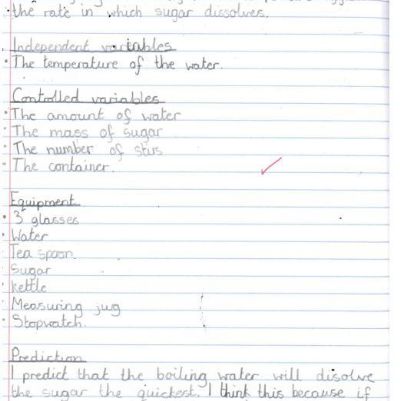 • the rate in which sugar dissolves.
Independent variables
• The temperature of the water.
Controlled variables
• The amount of water
• The mass of sugar
• The number of stirs
• The container.
Equipment
• 3 glasses
• Water
Tea spoon.
Sugar
• kettle
• Measuring jug
• Stopwatch.
Prediction
I predict that the boiling water will disolve
the sugar the quickest. I think this because if